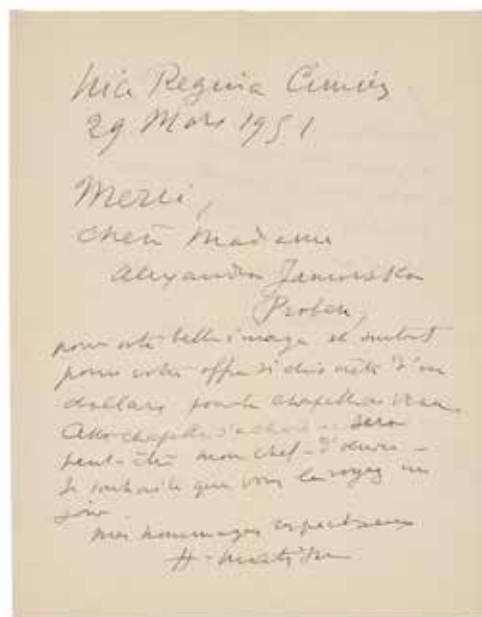 Nice Regina Cimiez
29 Mars 1951
Merci,
chère Madame
Alexandra
pour votre belle image et surtout
pour votre offre si discrète d'un
dollars pour la chapelle de Vence.
Cette chapelle s'achève sera
peut-être mon chef-d'œuvre –
Je souhaite que vous la voyez un
jour
mes hommages respectueux
H. Matisse